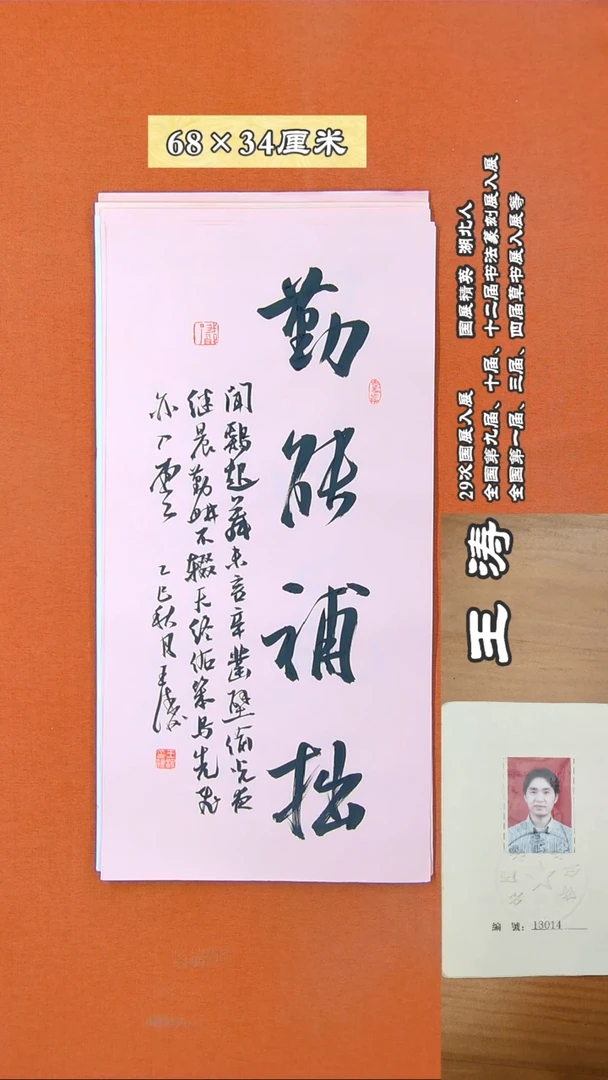 68×34厘米
勤能補拙
闻鷄起舞未言辛凿壁偷光夜
继晨勤耕不辍天终佑笨鸟先飞
亦入云 乙巳秋月 王涛
29次国展入展 国展精英 湖北人
全国第九届、十届、十二届书法篆刻展入展
全国第一届、三届、四届草书展入展等
王涛
編 號：13014